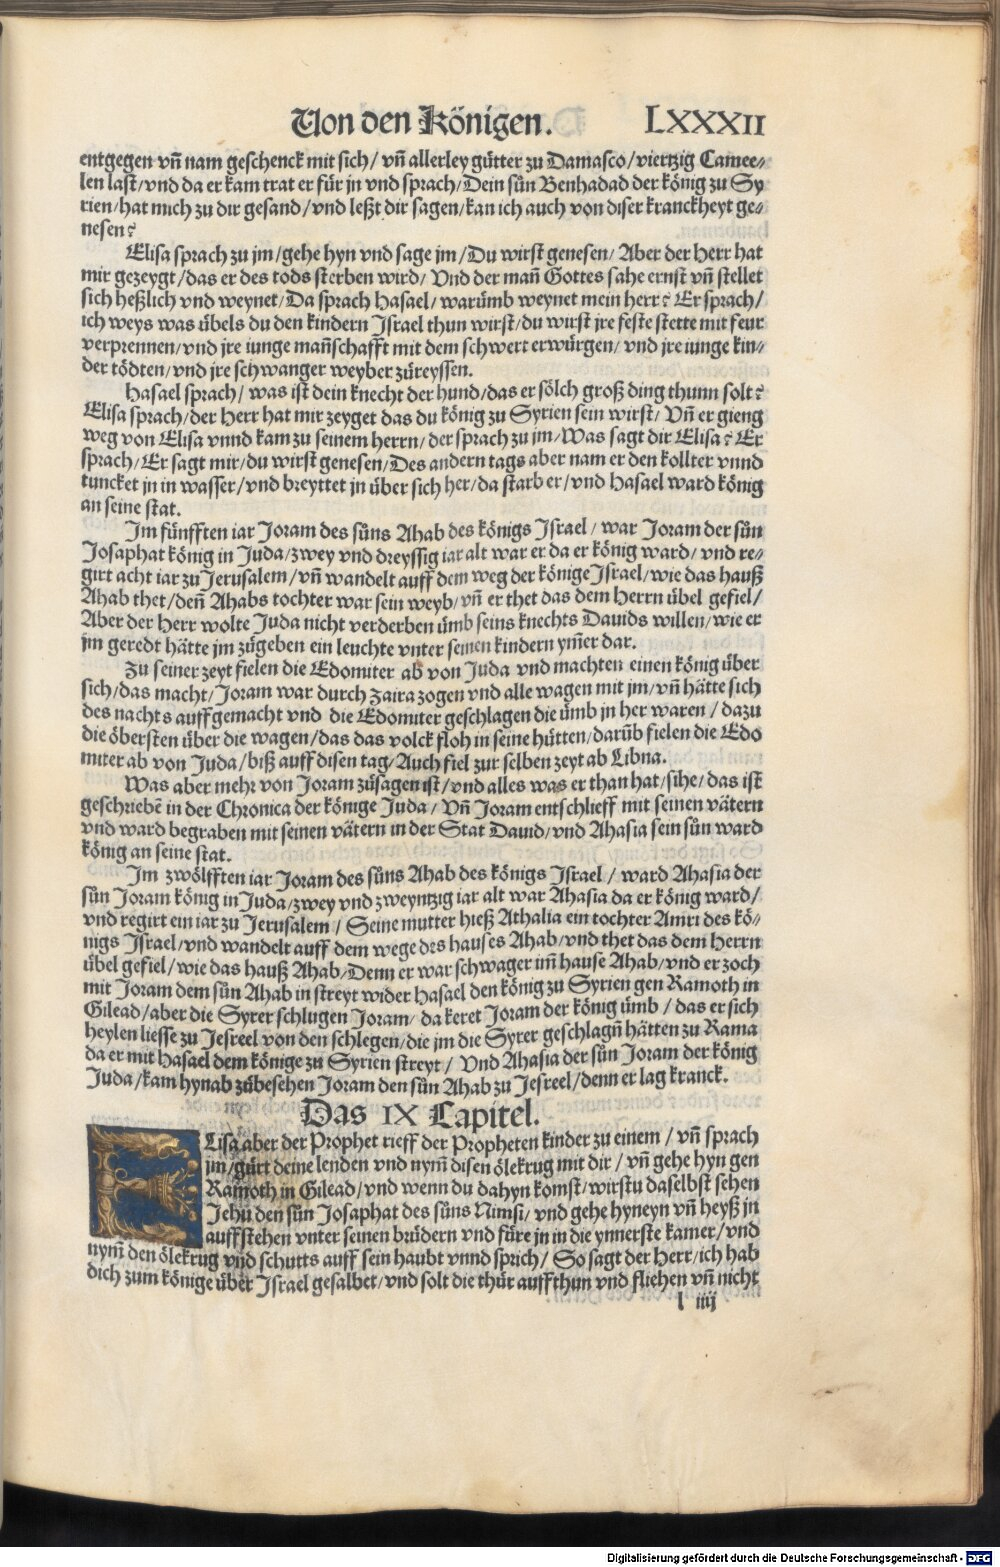 Von den Königen. LXXXII
entgegen vñ nam geschenck mit sich/ vñ allerley gütter zu Damasco/viertzig Camee⸗
len last/vnd da er kam trat er für jn vnd sprach/Dein sün Benhadad der könig zu Sy
rien/hat mich zu dir gesand/vnd leßt dir sagen/kan ich auch von diser kranckheyt ge⸗
nesen?
Elisa sprach zu jm/gehe hyn vnd sage jm/Du wirst genesen/ Aber der Herr hat
mir gezeygt/das er des tods sterben wird/ Vnd der mañ Gottes sahe ernst vñ stellet
sich heßlich vnd weynet/Da sprach Hasael/ warümb weynet mein herr? Er sprach/
ich weys was übels du den kindern Israel thun wirst/du wirst jre feste stette mit feur
verprennen/vnd jre iunge mañschafft mit dem schwert erwürgen/ vnd jre iunge kin⸗
der tödten/vnd jre schwanger weyber zůreyssen.
Hasael sprach/ was ist dein knecht der hund/das er sölch groß ding thunn solt?
Elisa sprach/der Herr hat mir zeyget das du könig zu Syrien sein wirst/ Vñ er gieng
weg von Elisa vnnd kam zu seinem herrn/ der sprach zu jm/Was sagt dir Elisa? Er
sprach/Er sagt mir/du wirst genesen/Des andern tags aber nam er den kollter vnnd
tuncket jn in wasser/vnd breyttet jn über sich her/da starb er/vnd Hasael ward könig
an seine stat.
Im fünfften iar Joram des süns Ahab des königs Israel/ war Joram der sün
Josaphat könig in Juda/zwey vnd dreyssig iar alt war er da er könig ward/ vnd re⸗
girt acht iar zu Jerusalem/vñ wandelt auff dem weg der könige Israel/wie das hauß
Ahab thet/deñ Ahabs tochter war sein weyb/vñ er thet das dem Herrn übel gefiel/
Aber der Herr wolte Juda nicht verderben ümb seins knechts Dauids willen/wie er
jm geredt hätte jm zůgeben ein leuchte vnter seinen kindern ym̃er dar.
Zu seiner zeyt fielen die Edomiter ab von Juda vnd machten einen könig über
sich/das macht/Joram war durch Zaira zogen vnd alle wagen mit jm/vñ hätte sich
des nachts auffgemacht vnd die Edomiter geschlagen die ümb jn her waren/ dazu
die öbersten über die wagen/das das volck floh in seine hütten/darüb fielen die Edo
miter ab von Juda/biß auff disen tag/Auch fiel zur selben zeyt ab Libna.
Was aber mehr von Joram zůsagen ist/vnd alles was er than hat/sihe/ das ist
geschriebẽ in der Chronica der könige Juda/ Vñ Joram entschlieff mit seinen vätern
vnd ward begraben mit seinen vätern in der Stat Dauid/vnd Ahasia sein sün ward
könig an seine stat.
Im zwölfften iar Joram des süns Ahab des königs Israel/ ward Ahasia der
sün Joram könig in Juda/zwey vnd zweyntzig iar alt war Ahasia da er könig ward/
vnd regirt ein iar zu Jerusalem/ Seine mutter hieß Athalia ein tochter Amri des kö⸗
nigs Israel/vnd wandelt auff dem wege des hauses Ahab/vnd thet das dem Herrn
übel gefiel/wie das hauß Ahab/Denn er war schwager im̃ hause Ahab/vnd er zoch
mit Joram dem sün Ahab in streyt wider Hasael den könig zu Syrien gen Ramoth in
Gilead/aber die Syrer schlugen Joram/ da keret Joram der könig ümb/ das er sich
heylen liesse zu Jesreel von den schlegen/die jm die Syrer geschlagñ hätten zu Rama
da er mit Hasael dem könige zu Syrien streyt/ Vnd Ahasia der sün Joram der könig
Juda/kam hynab zůbesehen Joram den sün Ahab zu Jesreel/denn er lag kranck.
Das IX Capitel.
ELisa aber der Prophet rieff der Propheten kinder zu einem/ vñ sprach
jm/gürt deine lenden vnd nym̃ disen ölekrug mit dir/ vñ gehe hyn gen
Ramoth in Gilead/vnd wenn du dahyn komst/wirstu daselbst sehen
Jehu den sün Josaphat des süns Nimsi/ vnd gehe hyneyn vñ heyß jn
auffstehen vnter seinen brüdern vnd füre jn in die ynnerste kamer/vnd
nym̃ den ölekrug vnd schutts auff sein haubt vnnd sprich/ So sagt der Herr/ich hab
dich zum könige über Israel gesalbet/vnd solt die thür auffthun vnd fliehen vñ nicht
l iiij
Digitalisierung gefördert durch die Deutsche Forschungsgemeinschaft - DFG